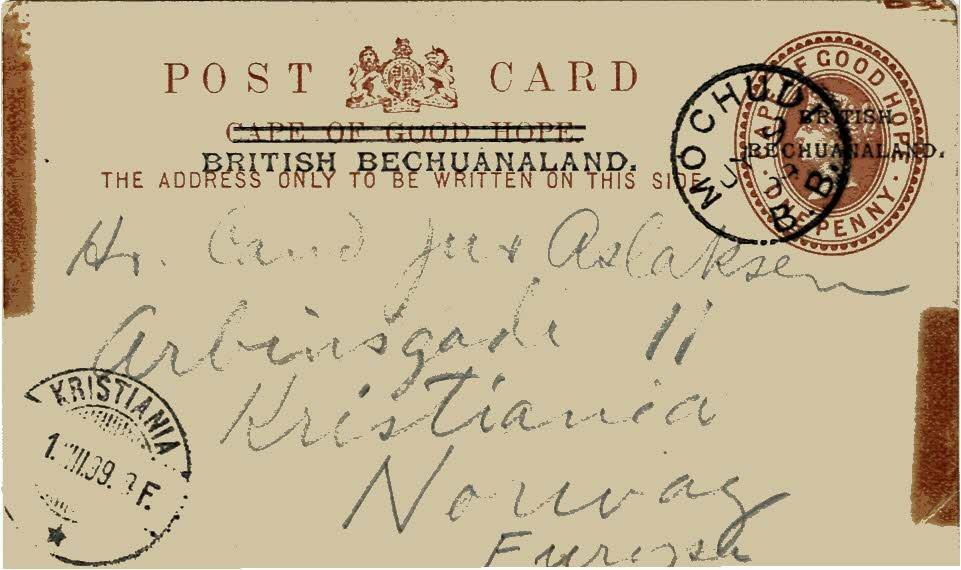 POST CARD
CAPE OF GOOD HOPE.
BRITISH BECHUANALAND.
THE ADDRESS ONLY TO BE WRITTEN ON THIS SIDE
CAPE OF GOOD HOPE
ONE PENNY
BRITISH
BECHUANALAND.
MOCHUDI
B.B.
Hr. Cand jur Aslaksen
Arbinsgade 11
Kristiania
Norway
Europa
KRISTIANIA